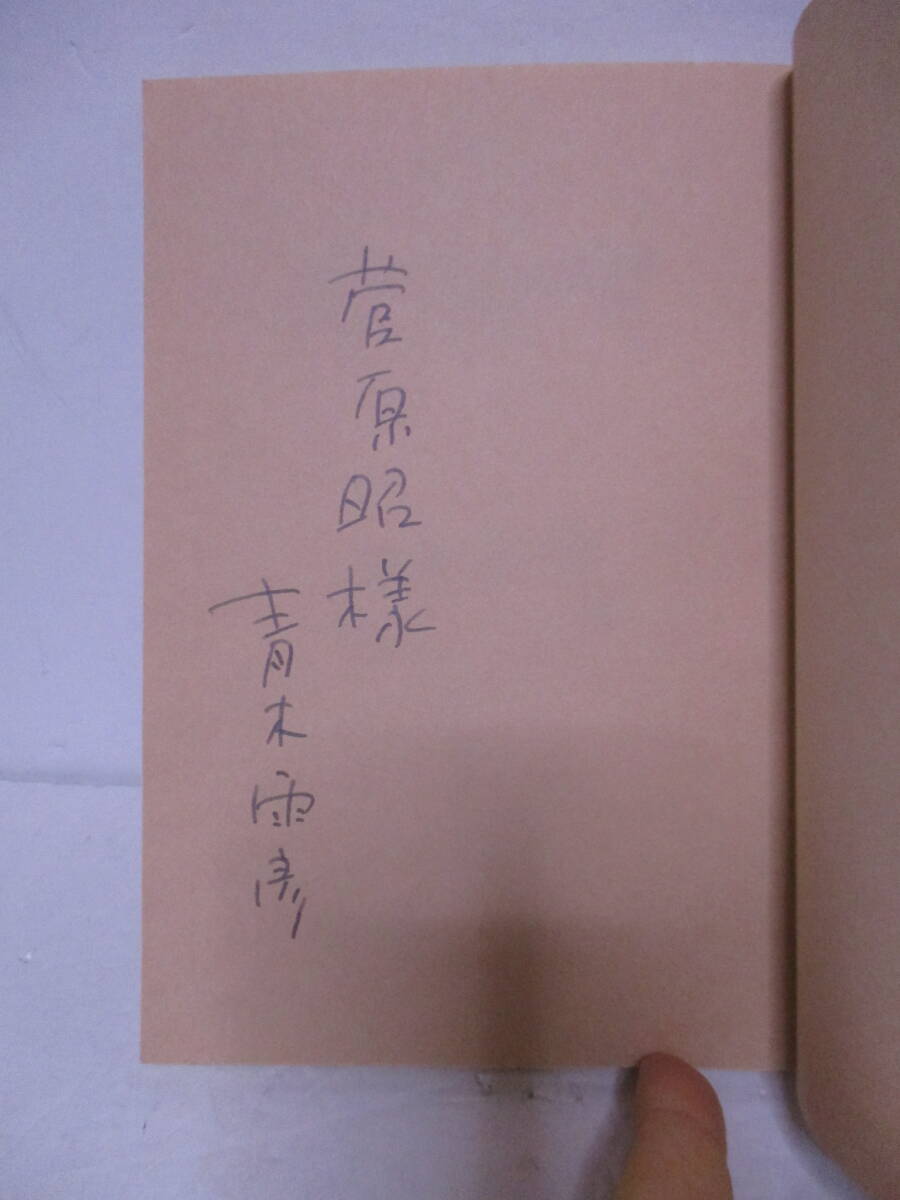 菅原昭様
青木雨彦